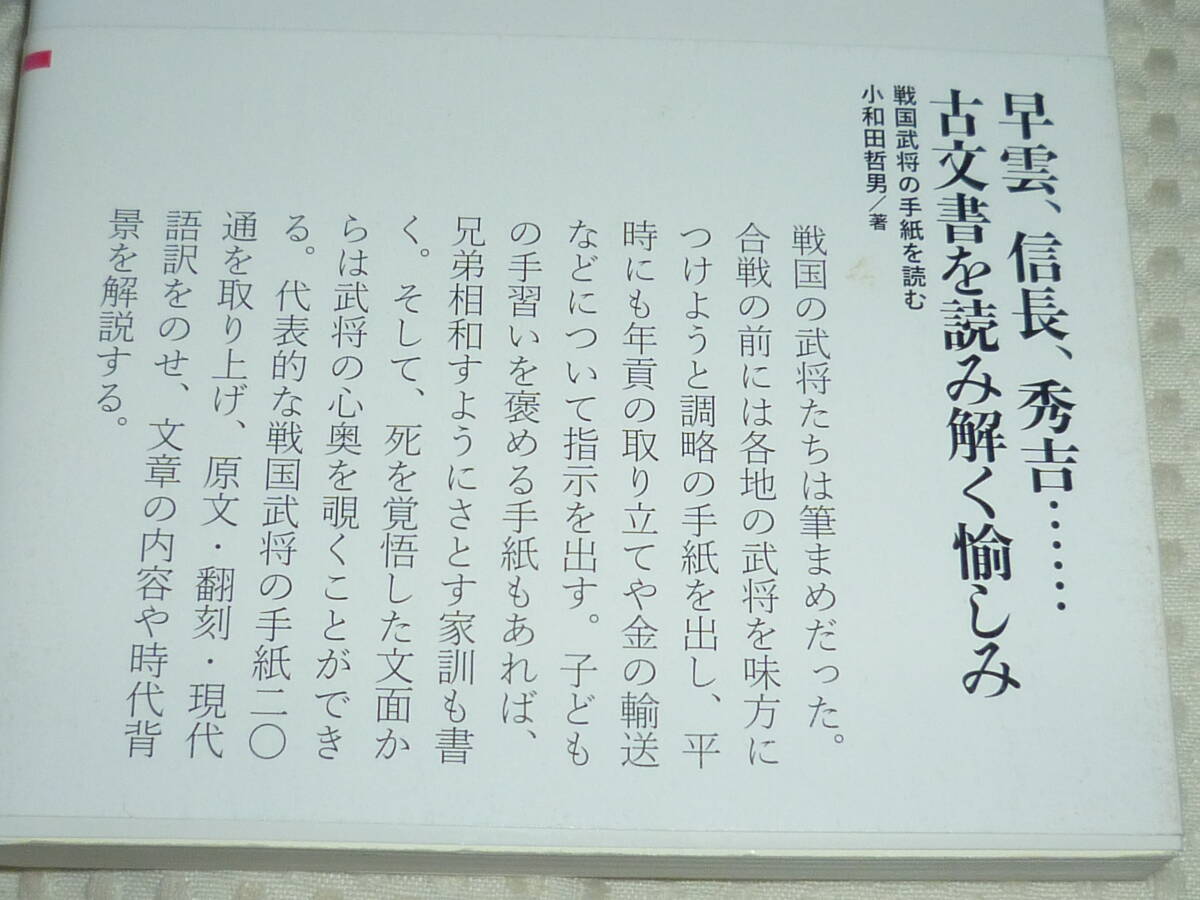 早雲、信長、秀吉……
古文書を読み解く愉しみ
戦国武将の手紙を読む
小和田哲男／著
戦国の武将たちは筆まめだった。
合戦の前には各地の武将を味方に
つけようと調略の手紙を出し、平
時にも年貢の取り立てや金の輸送
などについて指示を出す。子ども
の手習いを褒める手紙もあれば、
兄弟相和すようにさとす家訓も書
く。そして、死を覚悟した文面か
らは武将の心奥を覗くことができ
る。代表的な戦国武将の手紙二〇
通を取り上げ、原文・翻刻・現代
語訳をのせ、文章の内容や時代背
景を解説する。